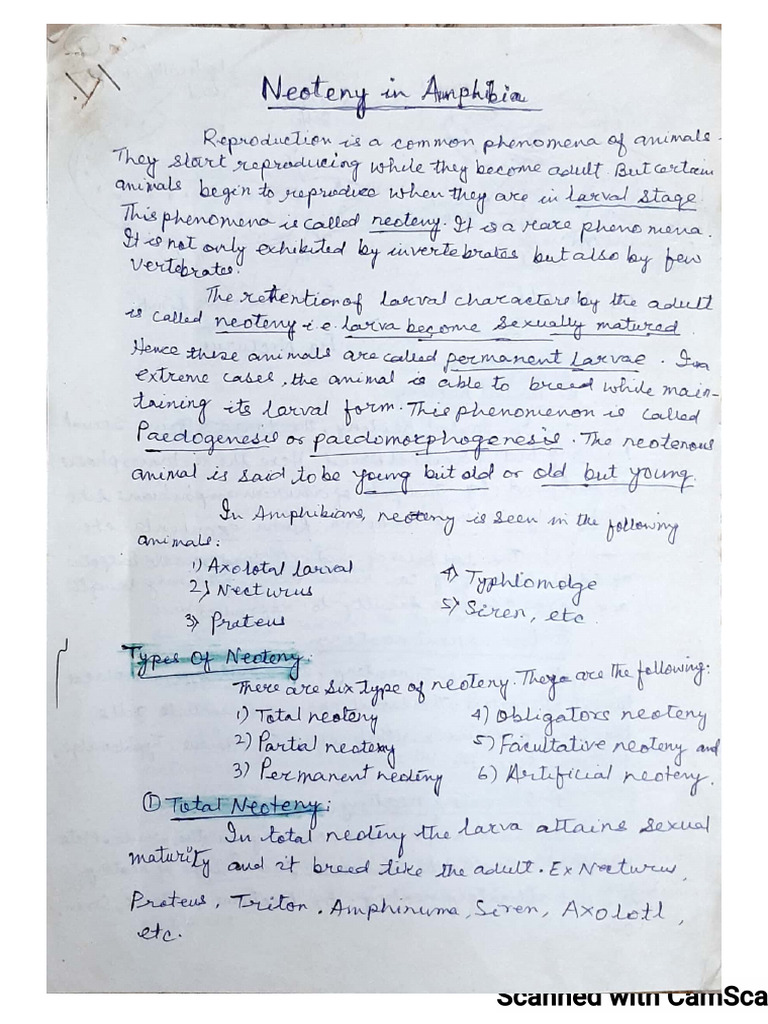 Neoteny in Amphibia
Reproduction is a common phenomena of animals.
They start reproducing while they become adult. But certain
animals begin to reproduce when they are in larval stage
This phenomena is called neoteny. It is a rare phenomena.
It is not only exhibited by invertebrates but also by few
vertebrates.
The retention of larval characters by the adult
is called neoteny i.e. larva become sexually matured.
Hence these animals are called permanent larvae. In
extreme cases, the animal is able to breed while main-
taining its larval form. This phenomenon is called
Paedogenesis or paedomorphogenesis. The neotenous
animal is said to be young but old or old but young.
In Amphibians, neoteny is seen in the following
animals:
1) Axolotal larval
2) Necturus
3) Proteus
4) Typhlomolge
5) Siren, etc
Types of Neoteny:
There are six type of neoteny. They are the following:
1) Total neoteny
2) Partial neoteny
3) Permanent neoteny
4) Obligators neoteny
5) Facultative neoteny and
6) Artificial neoteny.
① Total Neoteny:
In total neoteny the larva attains sexual
maturity and it breed like the adult. Ex Necturus,
Proteus, Triton. Amphinuma, Siren, Axolotl,
etc.
Scanned with CamSca